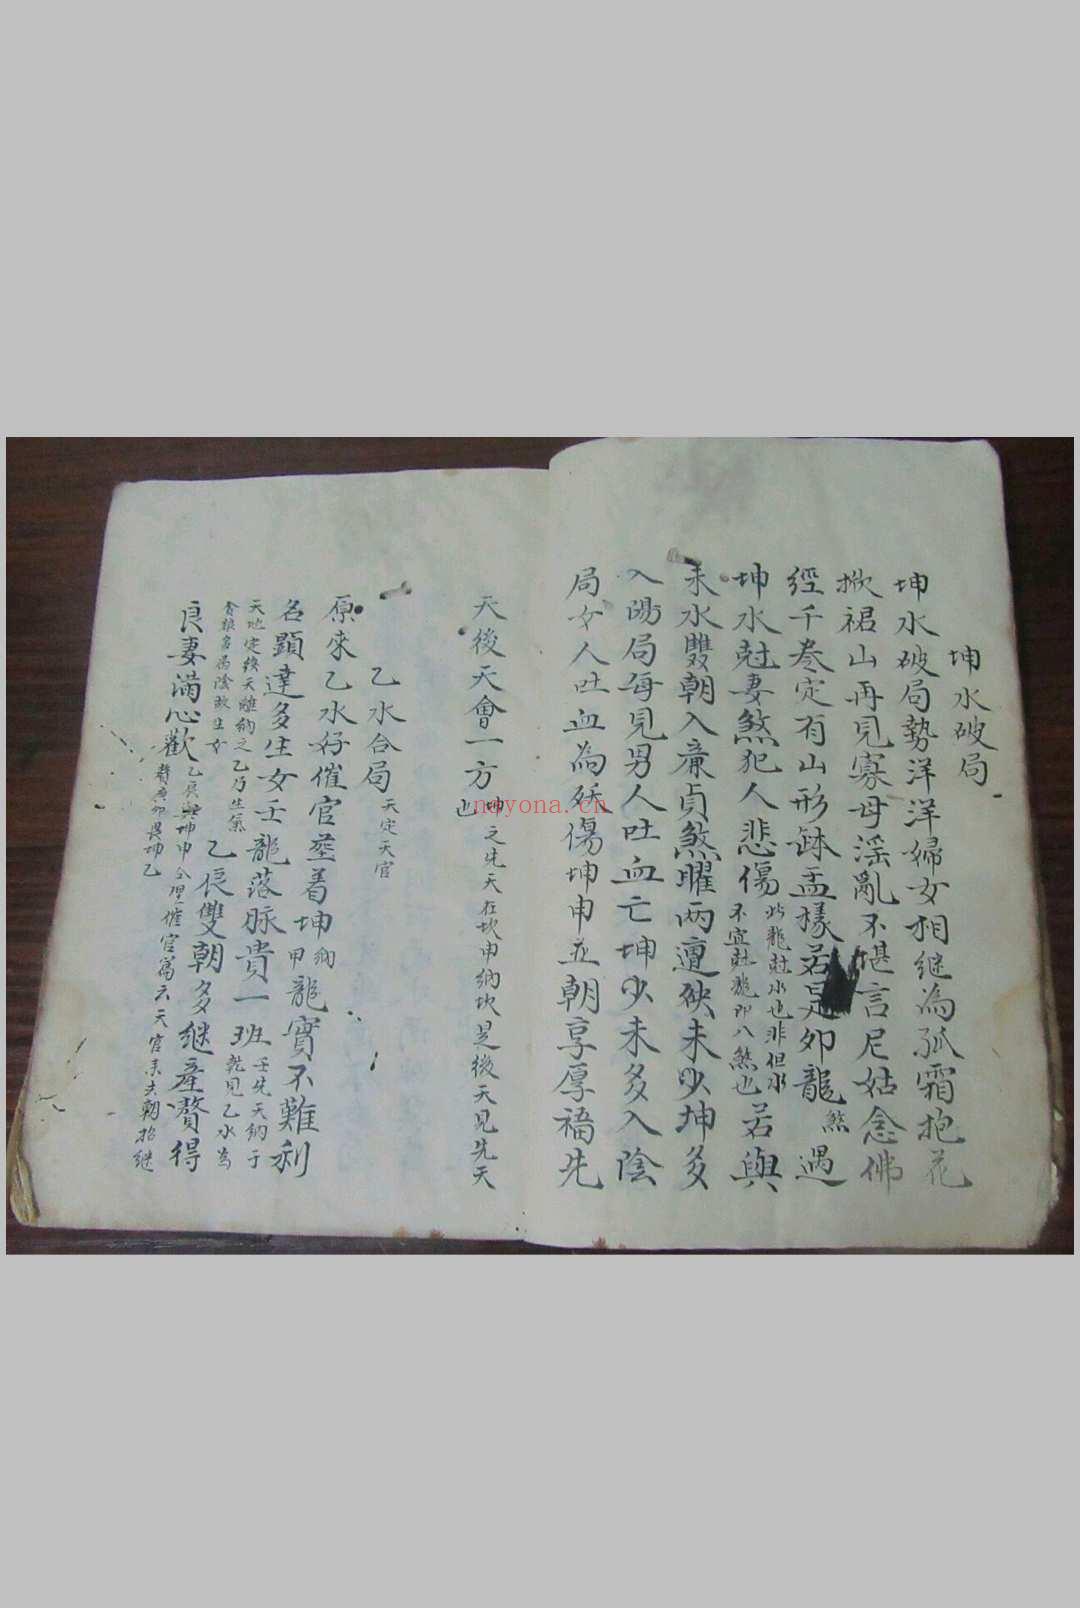 坤水破局
坤水破局勢洋洋婦女相継為孤霜抱花
掀裙山再見寡母淫亂不堪言尼姑念佛
經千卷定有山形缽盂樣若是卯龍煞遇
坤水尅妻煞犯人悲傷此龍尅水也非但水
不宜尅龍即八煞也若與
未水雙朝入廉貞煞曜兩邊殃未少坤多
入陽局每見男人吐血亡坤少未多入陰
局女人吐血為殀傷坤申並朝享厚福先
天後天會一方坤之先天在坎申納坎是後天見先天
也
乙水合局天定天官
原來乙水好催官塟着坤納甲龍實不難利
名顯達多生女壬龍落脉貴一班壬先天納于
乾見乙水為
天地定後天離納之乙乃生氣
貪狼多為陰故生女
乙辰雙朝多継產贅得
良妻滿心歡乙辰與坤申合理催官篇云天官未去朝招継
贅庚卯畏坤乙
noyona.cn